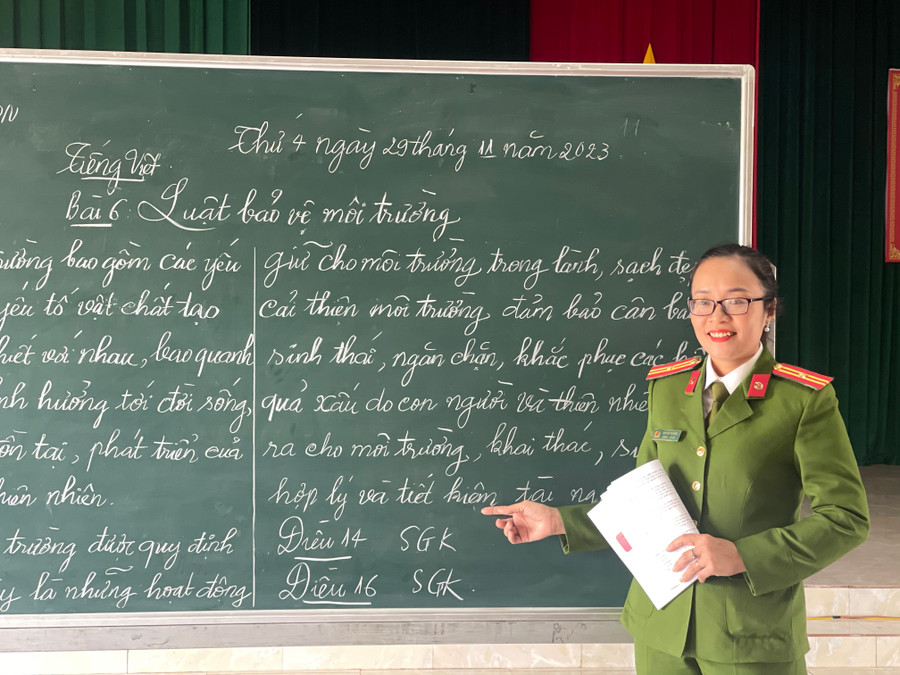 Thứ 4 ngày 29 tháng 11 năm 2023
Tiếng Việt
Bài 6: Luật bảo vệ môi trường
bao gồm các yếu
yếu tố vật chất tạo
với nhau, bao quanh
hưởng tới đời sống,
tại, phát triển của
nhiên.
trường được quy định
là những hoạt động
giữ cho môi trường trong lành, sạch
cải thiện môi trường, đảm bảo cân
sinh thái, ngăn chặn, khắc phục các
quả xấu do con người và thiên
ra cho môi trường, khai thác,
hợp lý và tiết kiệm tài
Điều 14 SGK
Điều 16 SGK.